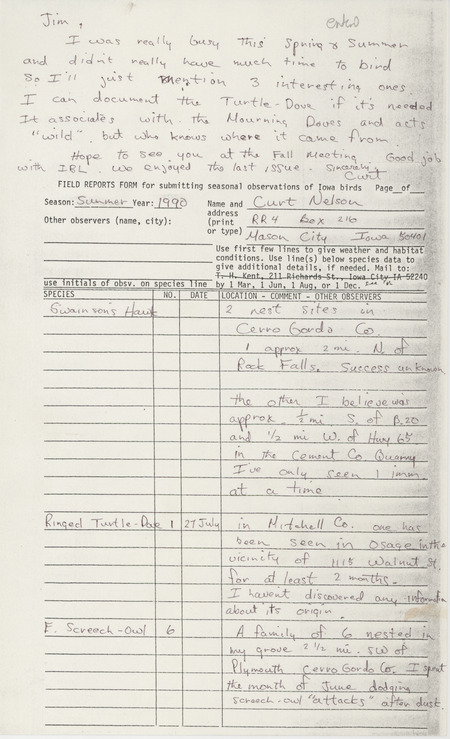 Jim,
I was really busy this Spring & Summer
and didn't really have much time to bird
So I'll just mention 3 interesting ones.
I can document the Turtle-Dove if it's needed
It associates with the Mourning Doves and acts
"wild" but who knows where it came from.
Hope to see you at the Fall Meeting. Good job
with IBL. We enjoyed the last issue. Sincerely,
Curt
FIELD REPORTS FORM for submitting seasonal observations of Iowa birds Page__of__
Season: Summer Year: 1990
Name and address (print or type)
Curt Nelson
RR4 Box 216
Mason City Iowa 50401
Other observers (name, city):
Use first few lines to give weather and habitat
conditions. Use line(s) below species data to
give additional details, if needed. Mail to:
T. H. Kent, 211 Richards St., Iowa City IA 52240
use initials of obsv. on species line by 1 Mar, 1 Jun, 1 Aug, or 1 Dec.
SPECIES NO. DATE LOCATION - COMMENT - OTHER OBSERVERS
Swainson's Hawk 2 nest sites in
Cerro Gordo Co.
1 approx 2 mi. N. of
Rock Falls. Success unknown
the other I believe was
approx. ½ mi S. of B-20
and ½ mi W. of Hwy 65
in the Cement Co. Quarry
I've only seen 1 imm.
at a time
Ringed Turtle-Dove 1 27 July in Mitchell Co. one has
been seen in Osage in the
vicinity of 1115 Walnut St.
for at least 2 months.
I havent discovered any information
about its origin.
E. Screech-Owl 6 A family of 6 nested in
my grove 2 ½ mi. SW of
Plymouth Cerro Gordo Co. I spent
the month of June dodging
screech-owl "attacks" after dusk.